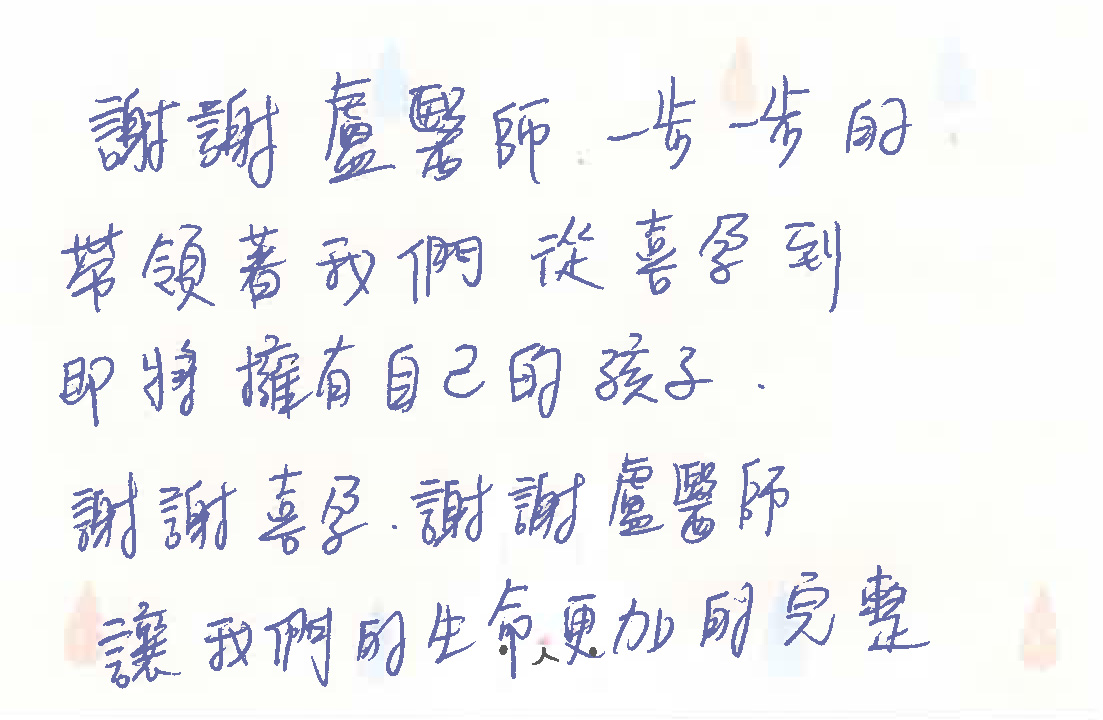 謝謝盧醫師一步一步的
帶領著我們從喜孕到
即將擁有自己的孩子.
謝謝喜孕.謝謝盧醫師
讓我們的生命更加的完整